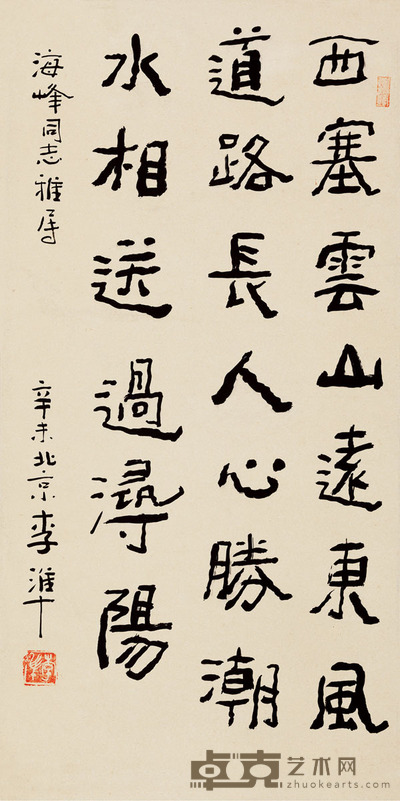 西塞雲山遠東風
道路長人心勝潮
水相送過潯陽
海峰同志雅属
辛未北京李淮十
卓克艺术网
zhuokearts.com